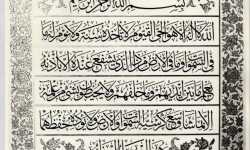 بسم الله الرحمن الرحيم
الله لا اله الا هو الحي القيوم لا تأخذه سنة ولا نوم له ما
في السموات وما في الارض من ذا الذي يشفع عنده الا باذنه
يعلم ما بين ايديهم وما خلفهم ولا يحيطون بشيء من علمه
الا بما شاء وسع كرسيه السموات والارض ولا يؤده حفظهما